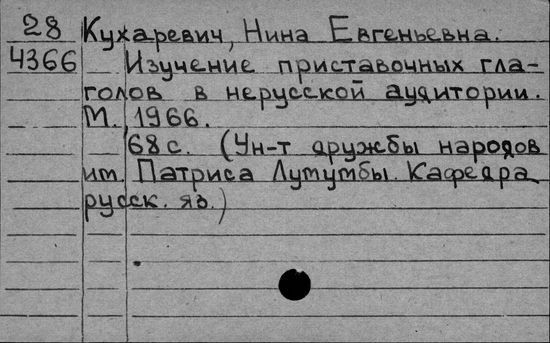 28 Кухаревич, Нина Евгеньевна.
4366 Изучение приставочных гла-
голов в нерусской аудитории.
М. 1966.
68 с. (Ун-т дружбы народов
им. Патриса Лумумбы. Кафедра
русск. яз.)